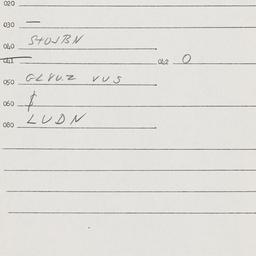 020
030 —
040 StOJBN
041 042 O
050 GLVUZ VUS
060 $
080 LUDN